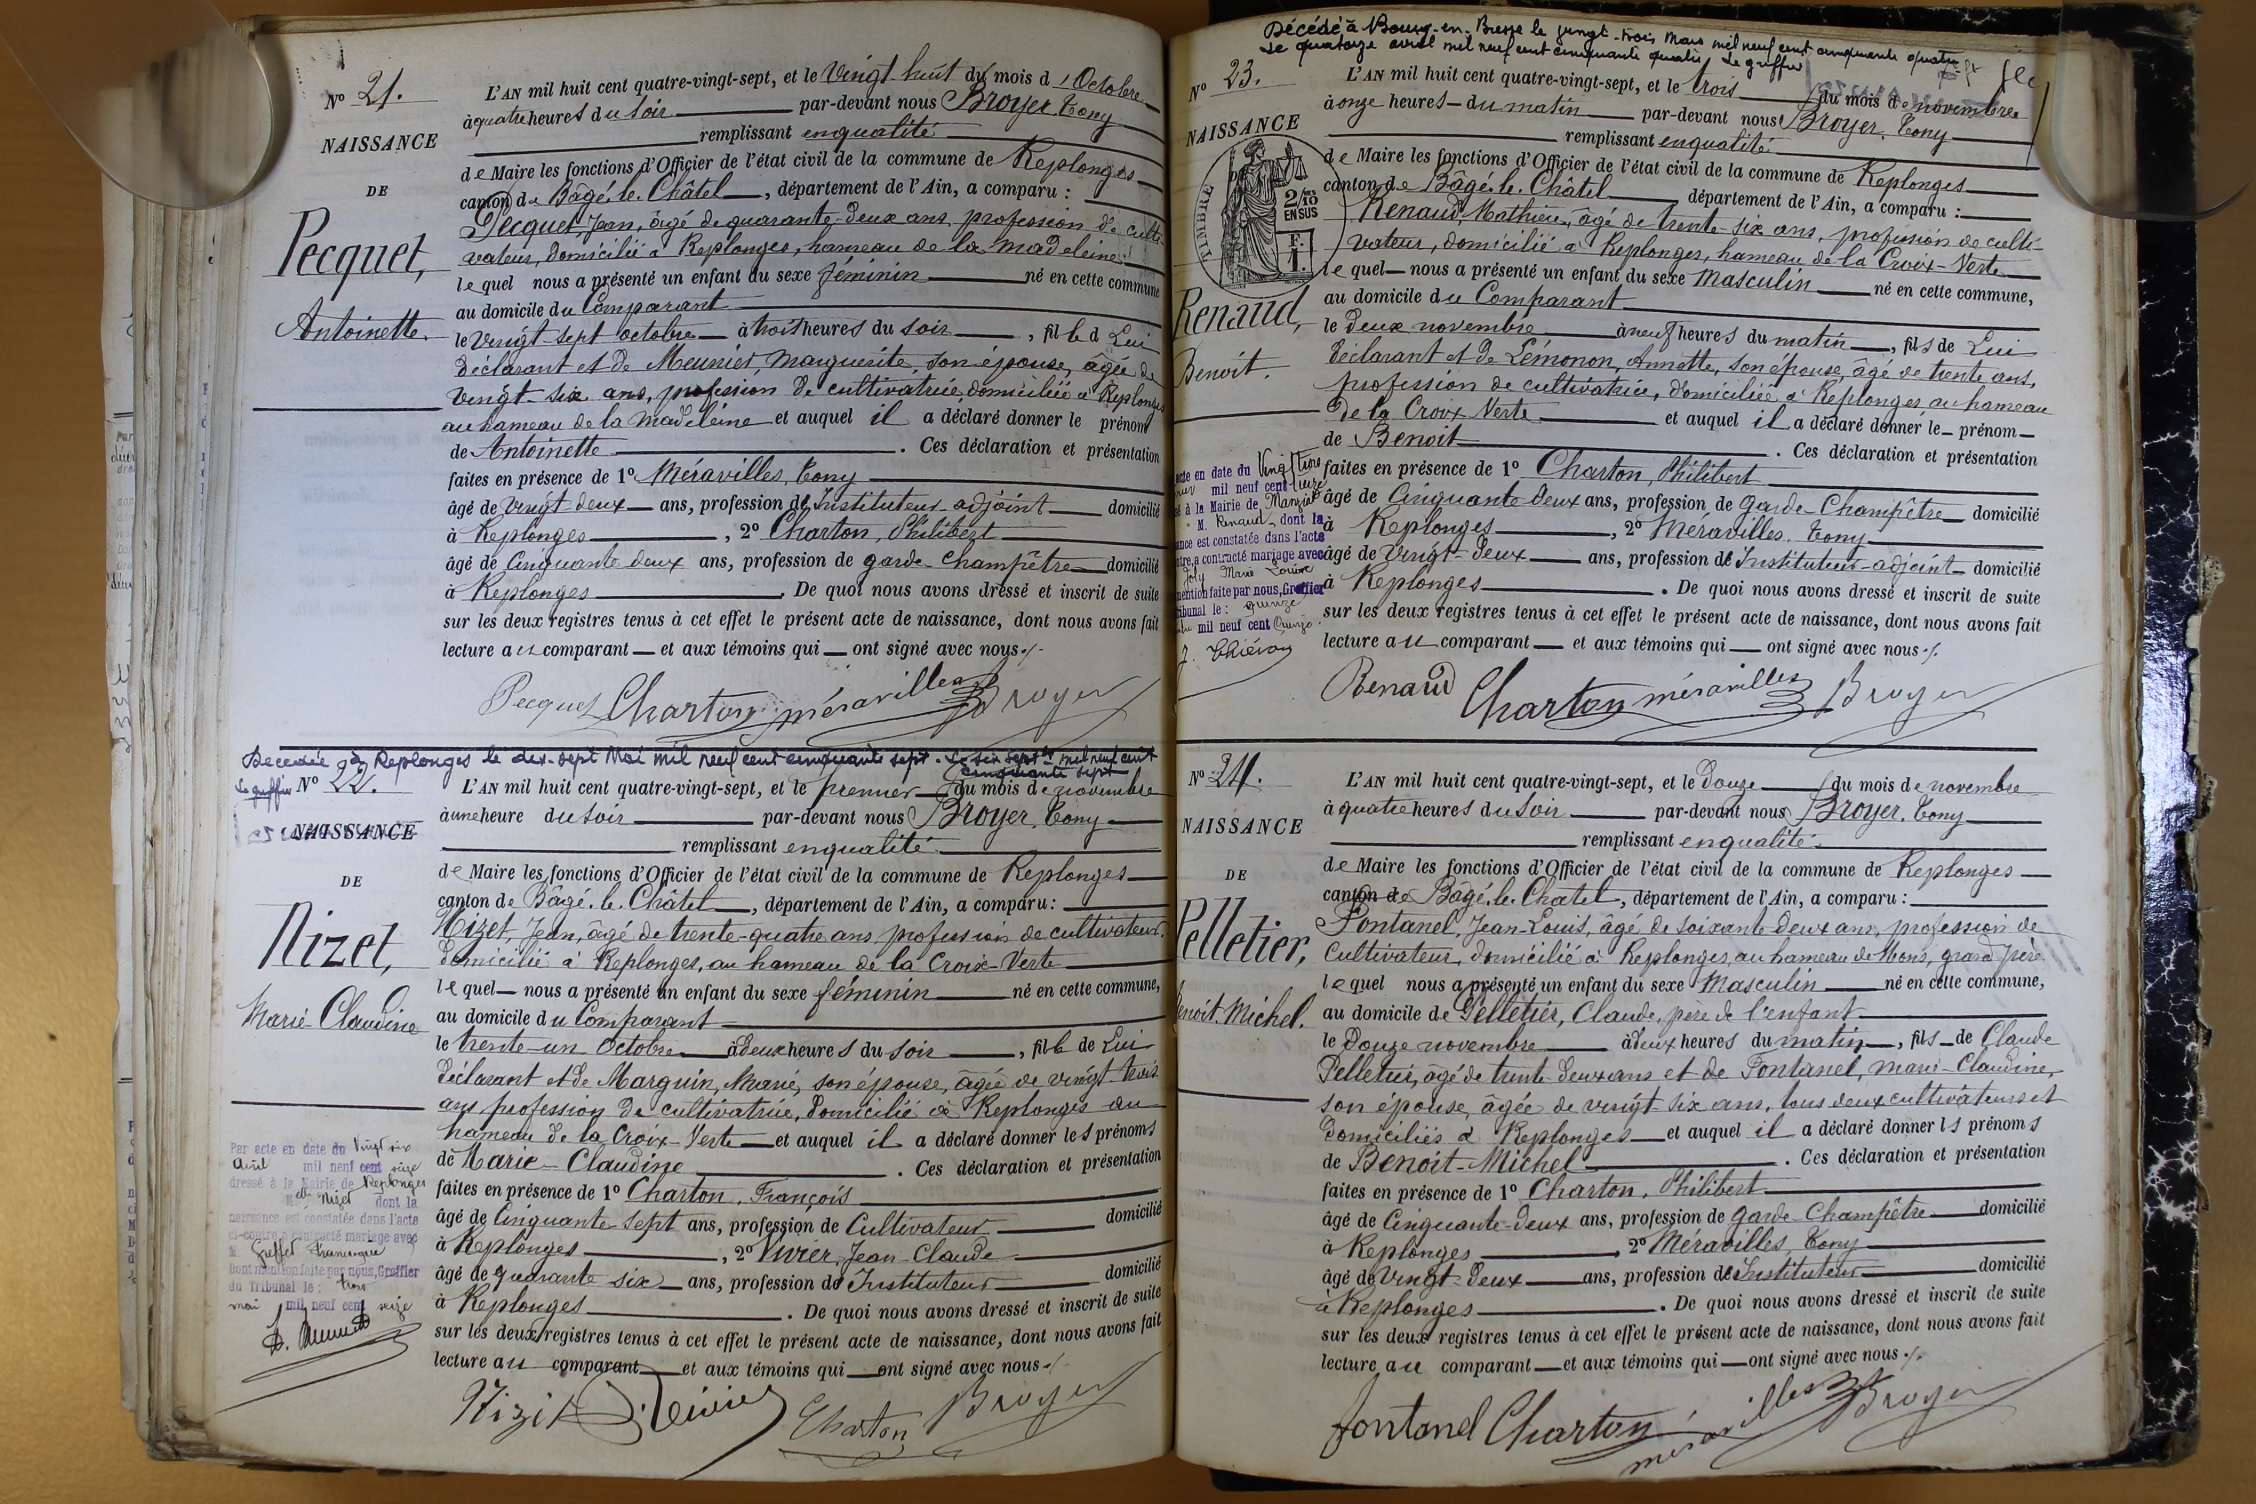 No 21.
NAISSANCE
DE
Pecquet,
Antoinette.
L'AN mil huit cent quatre-vingt-sept, et le Vingt huit du mois d'Octobre
à quatre heures du soir par-devant nous Broyer, Tony
remplissant en qualité
de Maire les fonctions d'Officier de l'état civil de la commune de Replonges
canton de Bâgé-le-Châtel, département de l'Ain, a comparu :
Pecquet, Jean, âgé de quarante-deux ans, profession de culti-
vateur, domicilié à Replonges, hameau de la Madeleine
lequel nous a présenté un enfant du sexe féminin né en cette commune
au domicile du Comparant
le vingt-sept octobre à trois heures du soir, fille de Lui
déclarant et de Meunier, Marguerite, son épouse, âgée de
vingt-six ans, profession de cultivatrice, domiciliée à Replonges
au hameau de la Madeleine et auquel il a déclaré donner le prénom
de Antoinette. Ces déclaration et présentation
faites en présence de 1º Méravilles, Tony
âgé de vingt deux ans, profession d'Instituteur-adjoint domicilié
à Replonges, 2º Charton, Philibert
âgé de Cinquante deux ans, profession de garde-Champêtre domicilié
à Replonges. De quoi nous avons dressé et inscrit de suite
sur les deux registres tenus à cet effet le présent acte de naissance, dont nous avons fait
lecture au comparant et aux témoins qui ont signé avec nous ./.
Pecquet Charton méravilles Broyer
Decedée à Replonges le dix-sept Mai mil neuf cent cinquante sept. Le six septbre mil neuf cent
cinquante sept
Le greffier
No 22.
NAISSANCE
DE
Nizet,
Marie-Claudine
L'AN mil huit cent quatre-vingt-sept, et le premier du mois de novembre
à une heure du soir par-devant nous Broyer, Tony
remplissant en qualité
de Maire les fonctions d'Officier de l'état civil de la commune de Replonges
canton de Bâgé-le-Châtel, département de l'Ain, a comparu :
Nizet, Jean, âgé de trente-quatre ans profession de cultivateur,
domicilié à Replonges, au hameau de la Croix-Verte
lequel nous a présenté un enfant du sexe féminin né en cette commune,
au domicile du Comparant
le trente-un Octobre à deux heures du soir, fille de Lui
déclarant et de Marguin, Marie, son épouse, âgée de vingt-trois
ans profession de cultivatrice, domicilié à Replonges au
hameau de la Croix-Verte et auquel il a déclaré donner les prénoms
de Marie-Claudine. Ces déclaration et présentation
faites en présence de 1º Charton, François
âgé de Cinquante sept ans, profession de Cultivateur domicilié
à Replonges, 2º Vivier, Jean-Claude
âgé de quarante six ans, profession d'Instituteur domicilié
à Replonges. De quoi nous avons dressé et inscrit de suite
sur les deux registres tenus à cet effet le présent acte de naissance, dont nous avons fait
lecture au comparant et aux témoins qui ont signé avec nous ./.
Nizet Vivier Charton Broyer
Par acte en date du Vingt six
Avril mil neuf cent seize
dressé à la Mairie de Replonges
Melle Nizet dont la
naissance est constatée dans l'acte
ci-contre, a contracté mariage avec
M. Greffet
Dont mention faite par nous, Greffier
du Tribunal le : trois
mai mil neuf cent seize
Décédé à Bourg-en-Bresse le vingt-trois Mars mil neuf cent cinquante quatre
Le quatorze avril mil neuf cent cinquante quatre Le greffier
No 23.
NAISSANCE
TIMBRE
2/10 EN SUS
F.
1.
Renaud,
Benoit.
L'AN mil huit cent quatre-vingt-sept, et le trois du mois de novembre
à onze heures du matin par-devant nous Broyer, Tony
remplissant en qualité
de Maire les fonctions d'Officier de l'état civil de la commune de Replonges
canton de Bâgé-le-Châtel département de l'Ain, a comparu :
Renaud, Mathieu, âgé de trente-six ans, profession de culti-
vateur, domicilié à Replonges, hameau de la Croix-Verte
lequel nous a présenté un enfant du sexe Masculin né en cette commune,
au domicile du Comparant
le deux novembre à neuf heures du matin, fils de Lui
déclarant et de Lémonon, Annette, son épouse, âgé de trente ans,
profession de cultivatrice, domiciliée à Replonges au hameau
de la Croix Verte et auquel il a déclaré donner le prénom
de Benoit. Ces déclaration et présentation
faites en présence de 1º Charton, Philibert
âgé de Cinquante deux ans, profession de garde-Champêtre domicilié
à Replonges, 2º Méravilles, Tony
âgé de vingt-deux ans, profession d'Instituteur-adjoint domicilié
à Replonges. De quoi nous avons dressé et inscrit de suite
sur les deux registres tenus à cet effet le présent acte de naissance, dont nous avons fait
lecture au comparant et aux témoins qui ont signé avec nous ./.
Renaud Charton méravilles Broyer
acte en date du Vingt trois
mil neuf cent
à la Mairie de Manziat
M. Renaud dont la
ance est constatée dans l'acte
ntre, a contracté mariage avec
Joly Marie Louise
mention faite par nous, Greffier
ibunal le : quinze
mil neuf cent Quinze
No 24.
NAISSANCE
DE
Pelletier,
enoit-Michel.
L'AN mil huit cent quatre-vingt-sept, et le Douze du mois de novembre
à quatre heures du soir par-devant nous Broyer, Tony
remplissant en qualité
de Maire les fonctions d'Officier de l'état civil de la commune de Replonges
canton de Bâgé-le-Châtel, département de l'Ain, a comparu :
Fontanel, Jean-Louis, âgé de soixante-deux ans, profession de
Cultivateur, domicilié à Replonges, au hameau de Mons, grand père
lequel nous a présenté un enfant du sexe Masculin né en cette commune,
au domicile de Pelletier, Claude, père de l'enfant
le Douze novembre à deux heures du matin, fils de Claude
Pelletier, âgé de trente-deux ans et de Fontanel, Marie-Claudine,
son épouse, âgée de vingt-six ans, tous deux cultivateurs et
domiciliés à Replonges et auquel il a déclaré donner ls prénoms
de Benoit-Michel. Ces déclaration et présentation
faites en présence de 1º Charton, Philibert
âgé de Cinquante-deux ans, profession de garde-Champêtre domicilié
à Replonges, 2º Méravilles, Tony
âgé de vingt-deux ans, profession d'Instituteur domicilié
à Replonges. De quoi nous avons dressé et inscrit de suite
sur les deux registres tenus à cet effet le présent acte de naissance, dont nous avons fait
lecture au comparant et aux témoins qui ont signé avec nous ./.
fontanel Charton méravilles Broyer